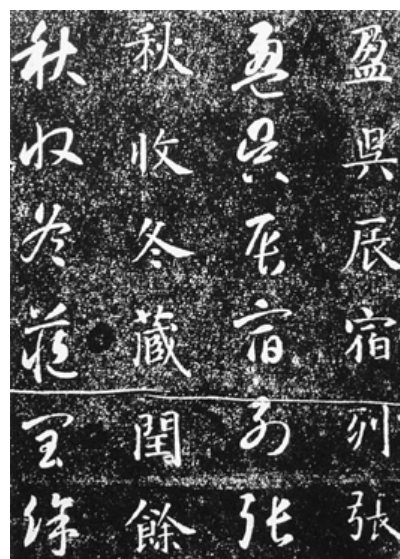 盈昃辰宿列張
盈昃辰宿列張
秋收冬蔵閏餘
秋收冬蔵閏餘